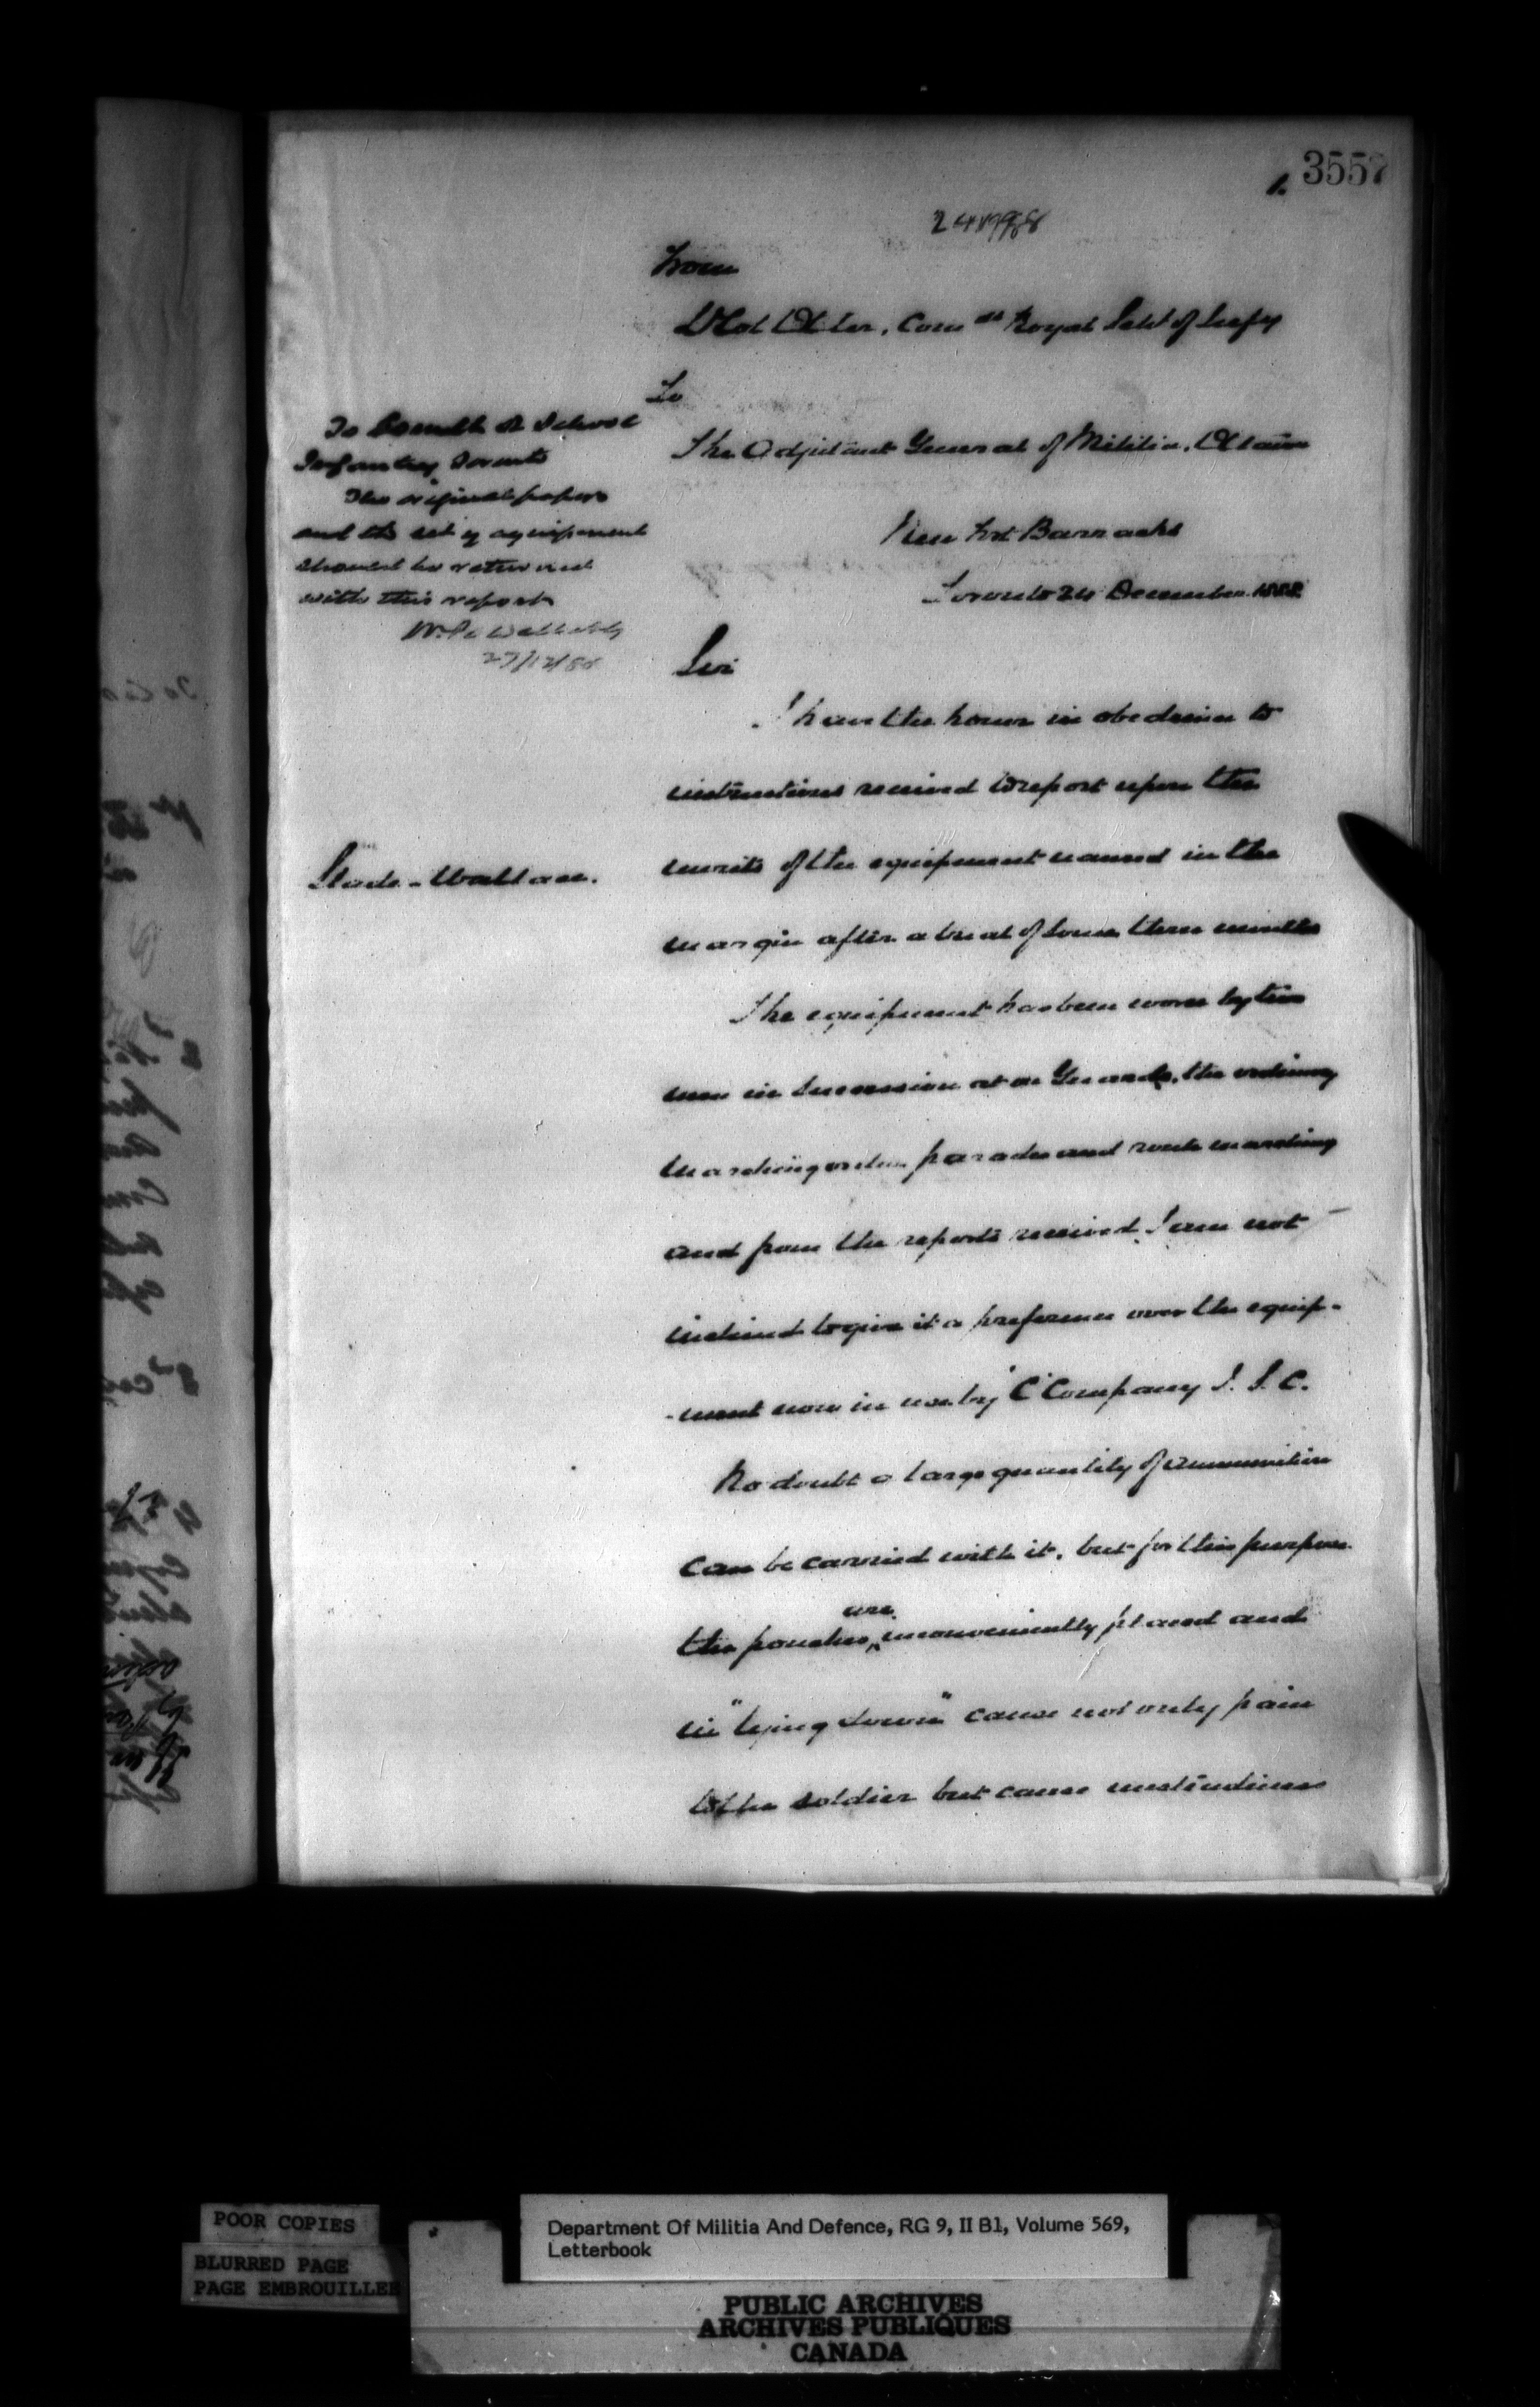 3557
1.
From
Lt Col Otter, Comdt Royal Schl of Infy
To
The Adjutant General of Militia, Ottawa
New Fort Barracks
Toronto 24 December 1888
To Comdt R School
Infantry Toronto
The original papers
and the set of equipment
should be returned
with this report
27/12/88
Sir
I have the honor in obedience to
instructions received to report upon the
Slade-Wallace.
merits of the equipment named in the
margin after a trial of some three months
The equipment has been worn by two
men in succession at on Guards, the ordinary
marching order parades and route marching
and from the reports received I am not
inclined to give it a preference over the equip-
-ment now in use by "C" Company I. S. C.
No doubt a large quantity of ammunition
can be carried with it, but for this purpose
the pouches are inconveniently placed and
in "lying down" cause not only pain
to the soldier but cause unsteadiness
POOR COPIES
BLURRED PAGE
PAGE EMBROUILLEE
Department Of Militia And Defence, RG 9, II B1, Volume 569,
Letterbook
PUBLIC ARCHIVES
ARCHIVES PUBLIQUES
CANADA